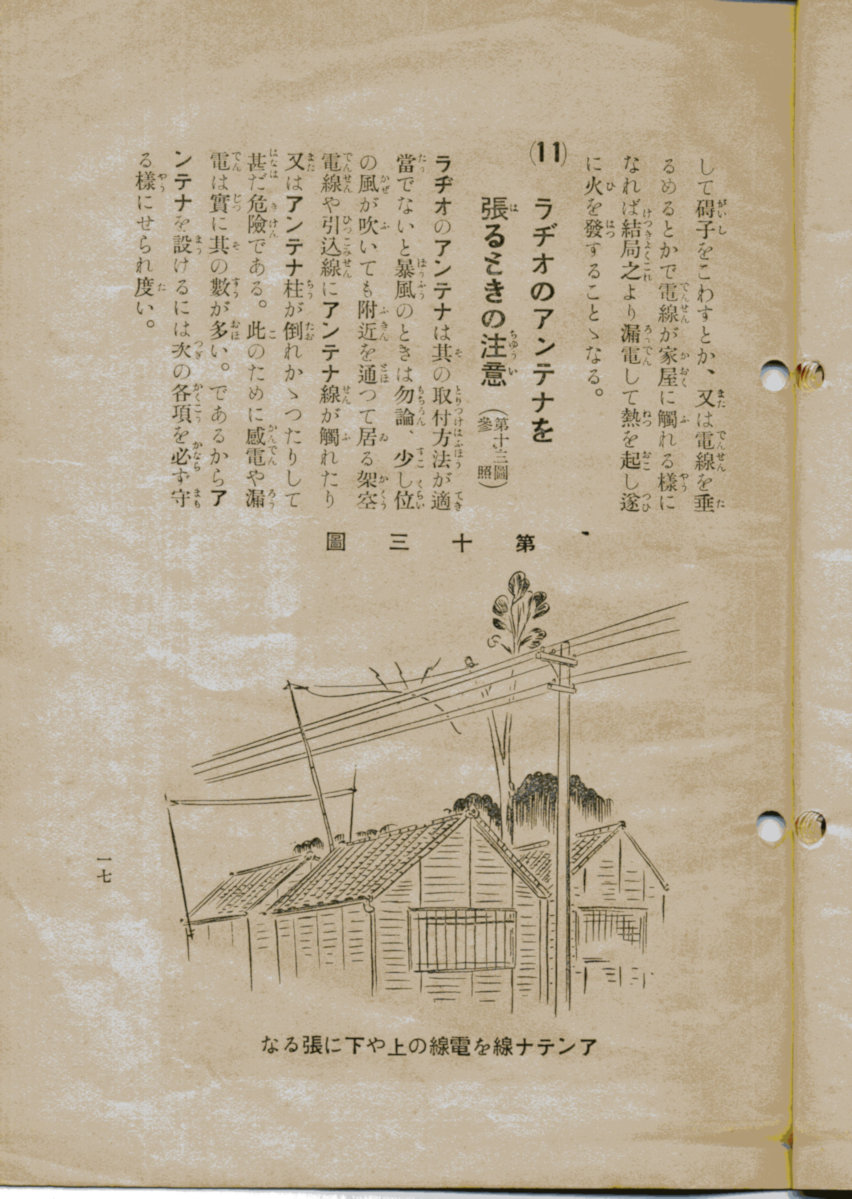 して碍子をこわすとか、又は電線を垂
るめるとかで電線が家屋に觸れる樣に
なれば結局之より漏電して熱を起し遂
に火を發することゝなる。
(11) ラヂオのアンテナを
張るときの注意（第十三圖參照）
ラヂオのアンテナは其の取付方法が適
當でないと暴風のときは勿論、少し位
の風が吹いても附近を通つて居る架空
電線や引込線にアンテナ線が觸れたり
又はアンテナ柱が倒れかゝつたりして
甚だ危險である。此のために感電や漏
電は實に其の數が多い。であるからア
ンテナを設けるには次の各項を必ず守
る樣にせられ度い。
圖三十第
なる張に下や上の線電を線ナテンア
一七